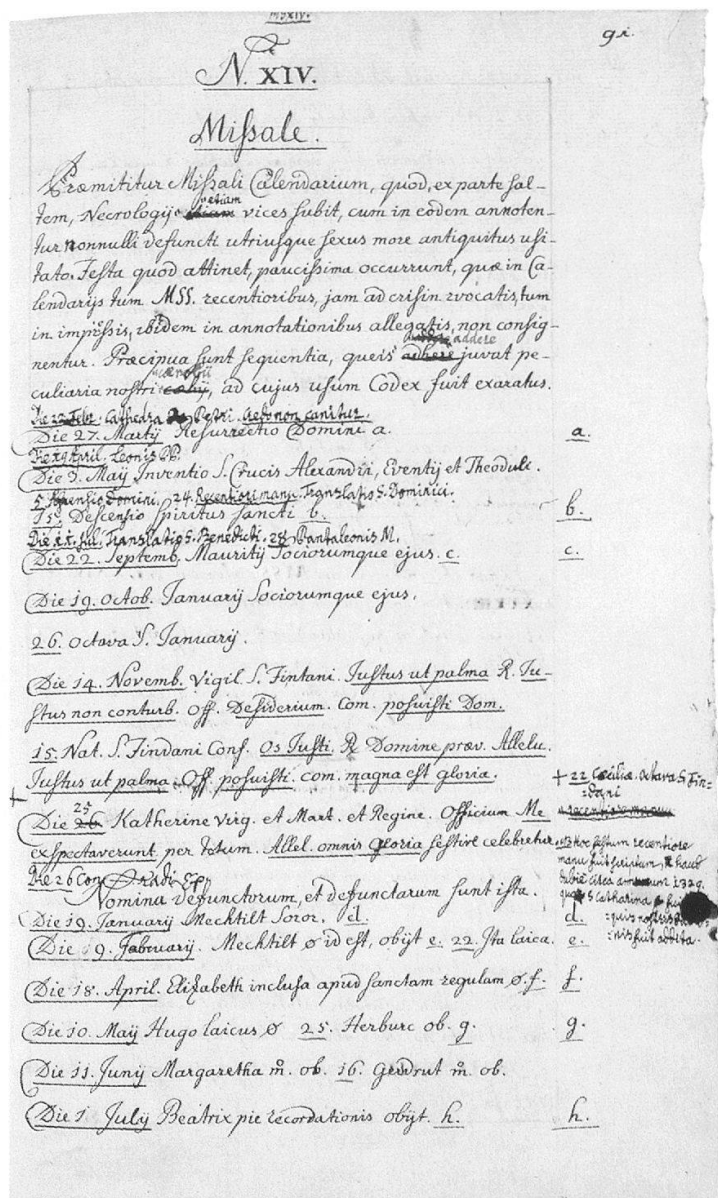 MSXIV.
91.
N. XIV.
Missale.
Præmititur Missali Calendarium, quod, ex parte sal-
tem, Necrologij etiam vices subit, cum in eodem annoten-
tur nonnulli defuncti utriusque sexus more antiquitus usi-
tato. Festa quod attinet, paucissima occurrunt, quæ in Ca-
lendarijs tum MSS. recentioribus, jam ad crisin vocatis, tum
in impressis, ibidem in annotationibus allegatis, non consig-
nentur. Præcipua sunt sequentia, queis addere juvat pe-
culiaria nostri, ad cujus usum Codex fuit exaratus.
Die 22 Febr. Cathedra Petri. Credo non canitur.
Die 27. Martij Resurrectio Domini a. a.
Die 19 April. Leonis PP.
Die 3. Maij Inventio S. Crucis Alexandri, Eventij et Theoduli.
5. Ascensio Domini, 24. Recentiori manu Translatio S. Dominici.
15. Descensio Spiritus Sancti b. b.
Die 11. Jul. Translatio S. Benedicti. 28 Pantaleonis M.
Die 22. Septemb. Mauritij Sociorumque ejus. c. c.
Die 19. Octob. Januarij Sociorumque ejus.
26. Octava S. Januarij.
Die 14. Novemb. Vigil. S. Fintani. Justus ut palma R. Ju-
stus non conturb. Off. Desiderium. Com. posuisti Dom.
15. Nat. S. Findani Conf. Os Justi. R. Domine præv. Allelu.
Justus ut palma. Off. posuisti. com. magna est gloria.
+ 22 Cæciliæ. Octava S. Fin=
=dani
Die 25 Katherine virg. et Mart. et Regine. Officium Me
exspectaverunt per totum. Allel. omnis gloria festive celebretur.
hoc festum recentiore
manu fuit scriptum, haud
dubie circa annum 1320.
S Catharina
nis fuit addita.
Die 26 Conradi Ep.
Nomina defunctorum, et defunctarum sunt ista.
Die 19. January Mechtilt Soror. d. d.
Die 19. Februarij. Mechtilt ø id est, obijt e. 22. Ita laica. e.
Die 18. April. Elizabeth inclusa apud sanctam regulam ø. f. f.
Die 10. Maij Hugo laicus ø 25. Herburc ob. g. g.
Die 11. Junij Margaretha m. ob. 16. Gerdrut m. ob.
Die 1. July Beatrix pie recordationis obijt. h. h.